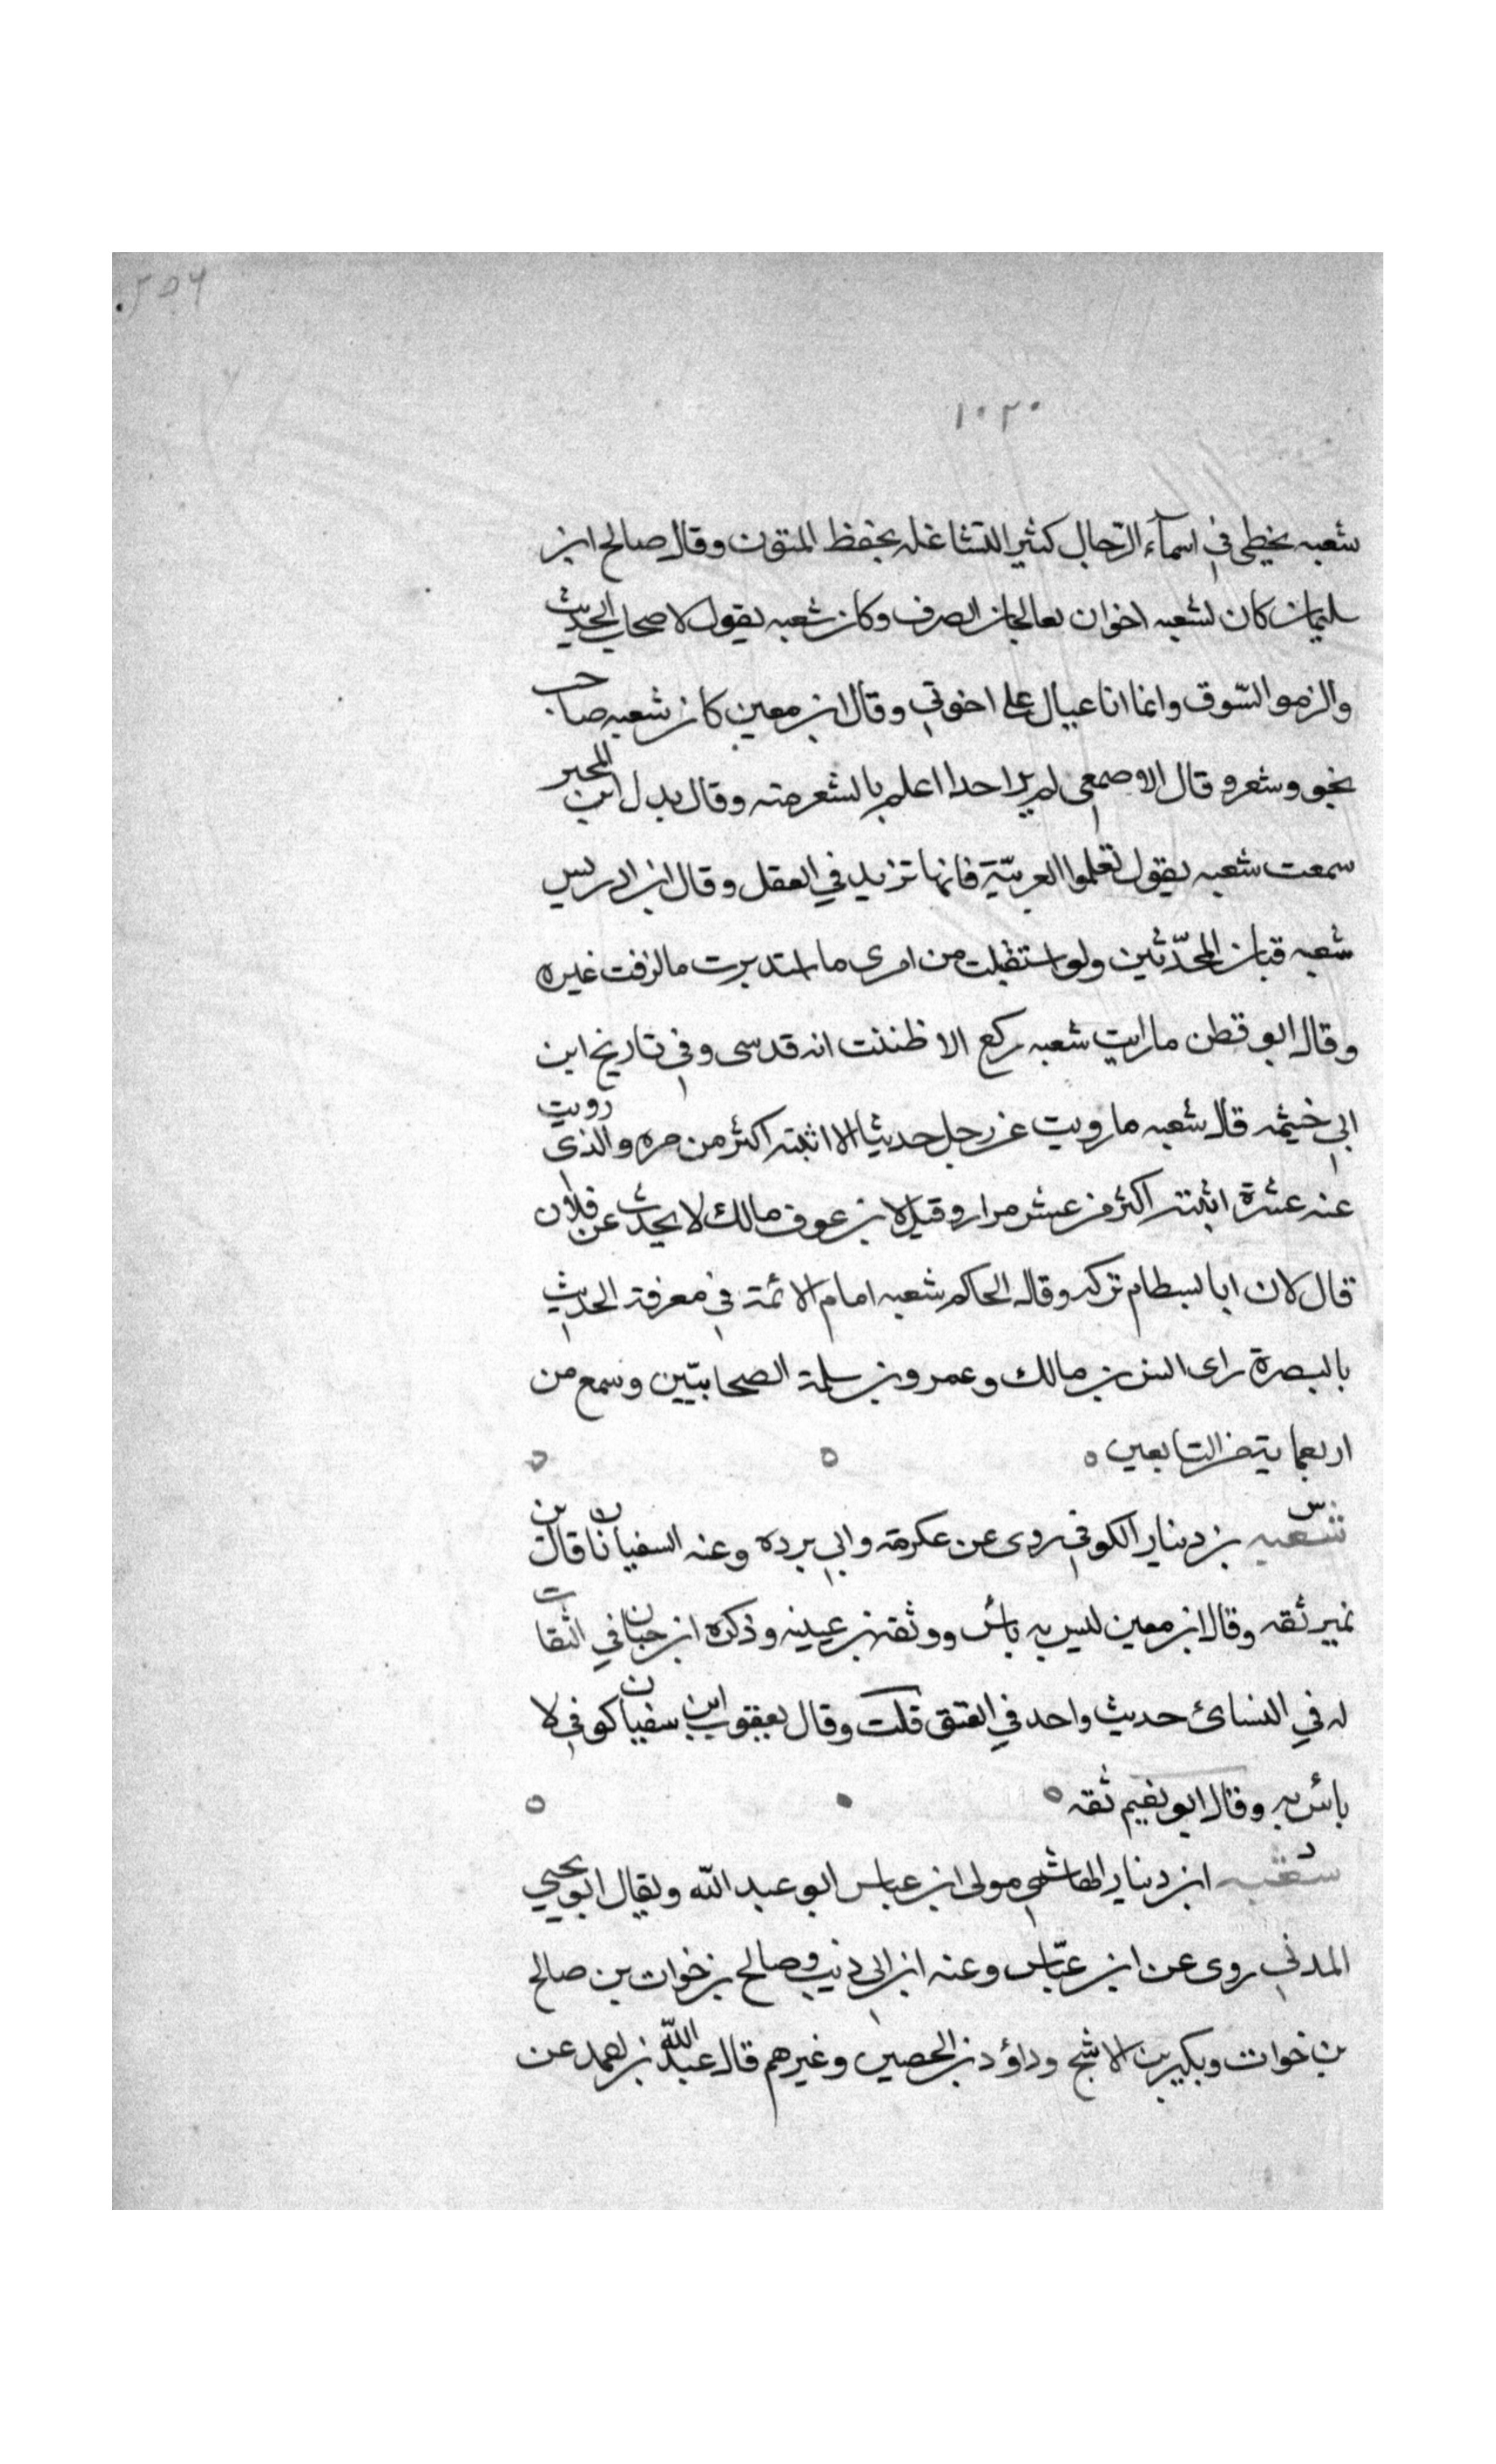 ١٠٢٠
شعبه يخطي في اسمآء الرّجال كثير التشاغله بحفظ المتون وقال صالح ابن
سليمان كان لشعبه اخوان يعالجان الصرف وكان شعبه يقول لاصحاب الحديث
والزموا السّوق وانما انا عيال على اخوتي وقال ابن معين كان شعبه صاحب
نحو وشعر و قال الاصمعي لم ير احدا اعلم بالشعر منه وقال بدل ابن المحبر
سمعت شعبه يقول تعلموا العربيّة فانها تزيد في العقل وقال ابن ادريس
شعبه قبان المحدّثين ولو استقبلت من امرى ما استدبرت ما لزمت غيره
وقال ابو قطن ما رايت شعبه ركع الا ظننت انه قد سى وفي تاريخ ابن
ابي خيثمه قال شعبه ما رويت عن رجل حديثا الا اثبته اكثر من مره والذى رويت
عنه عشرة اثبته اكثر من عشر مرار وقيل لابن عوف مالك لا يحدث عن فلان
قال لان ابا بسطام تركه وقال الحاكم شعبه امام الائمة في معرفة الحديث
بالبصرة راى انس بن مالك وعمرو بن سلمة الصحابيّين وسمع من
اربعمايه من التابعين
س
شعبه بن دينار الكوفي روى عن عكرمه وابي برده وعنه السفيانان قال بن
نمير ثقه وقال ابن معين ليس به باس ووثقه بن عيينه وذكره ابن حبان في الثقات
له في النسائ حديث واحد في العتق قلت وقال يعقوب ابن سفيان كوفي لا
بائس به وقال ابو نعيم ثقه
د
شعبه ابن دينار الهاشمي مولى ابن عباس ابو عبد الله ويقال ابو يحيي
المدني روى عن ابن عبّاس وعنه ابن ابي ذيب وصالح بن خوات بن صالح
بن خوات وبكير بن الاشج وداؤد بن الحصين وغيرهم قال عبد الله بن احمد عن